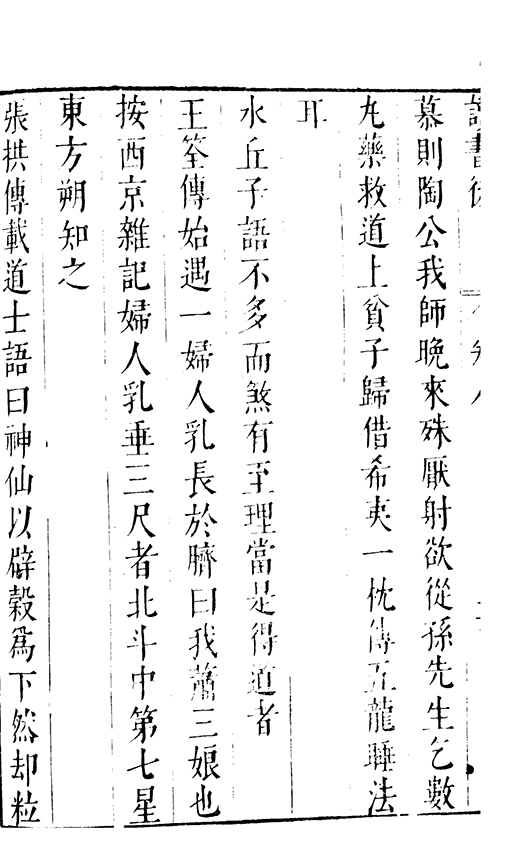 讀書後
卷八
慕則陶公我師晚來殊厭射欲從孫先生乞數
丸藥救道上貧子歸借希夷一枕傳五龍睡法
耳
水丘子語不多而煞有至理當是得道者
王筌傳始遇一婦人乳長於臍曰我蕭三娘也
按西京雜記婦人乳垂三尺者北斗中第七星
東方朔知之
張拱傳載道士語曰神仙以辟穀爲下然却粒